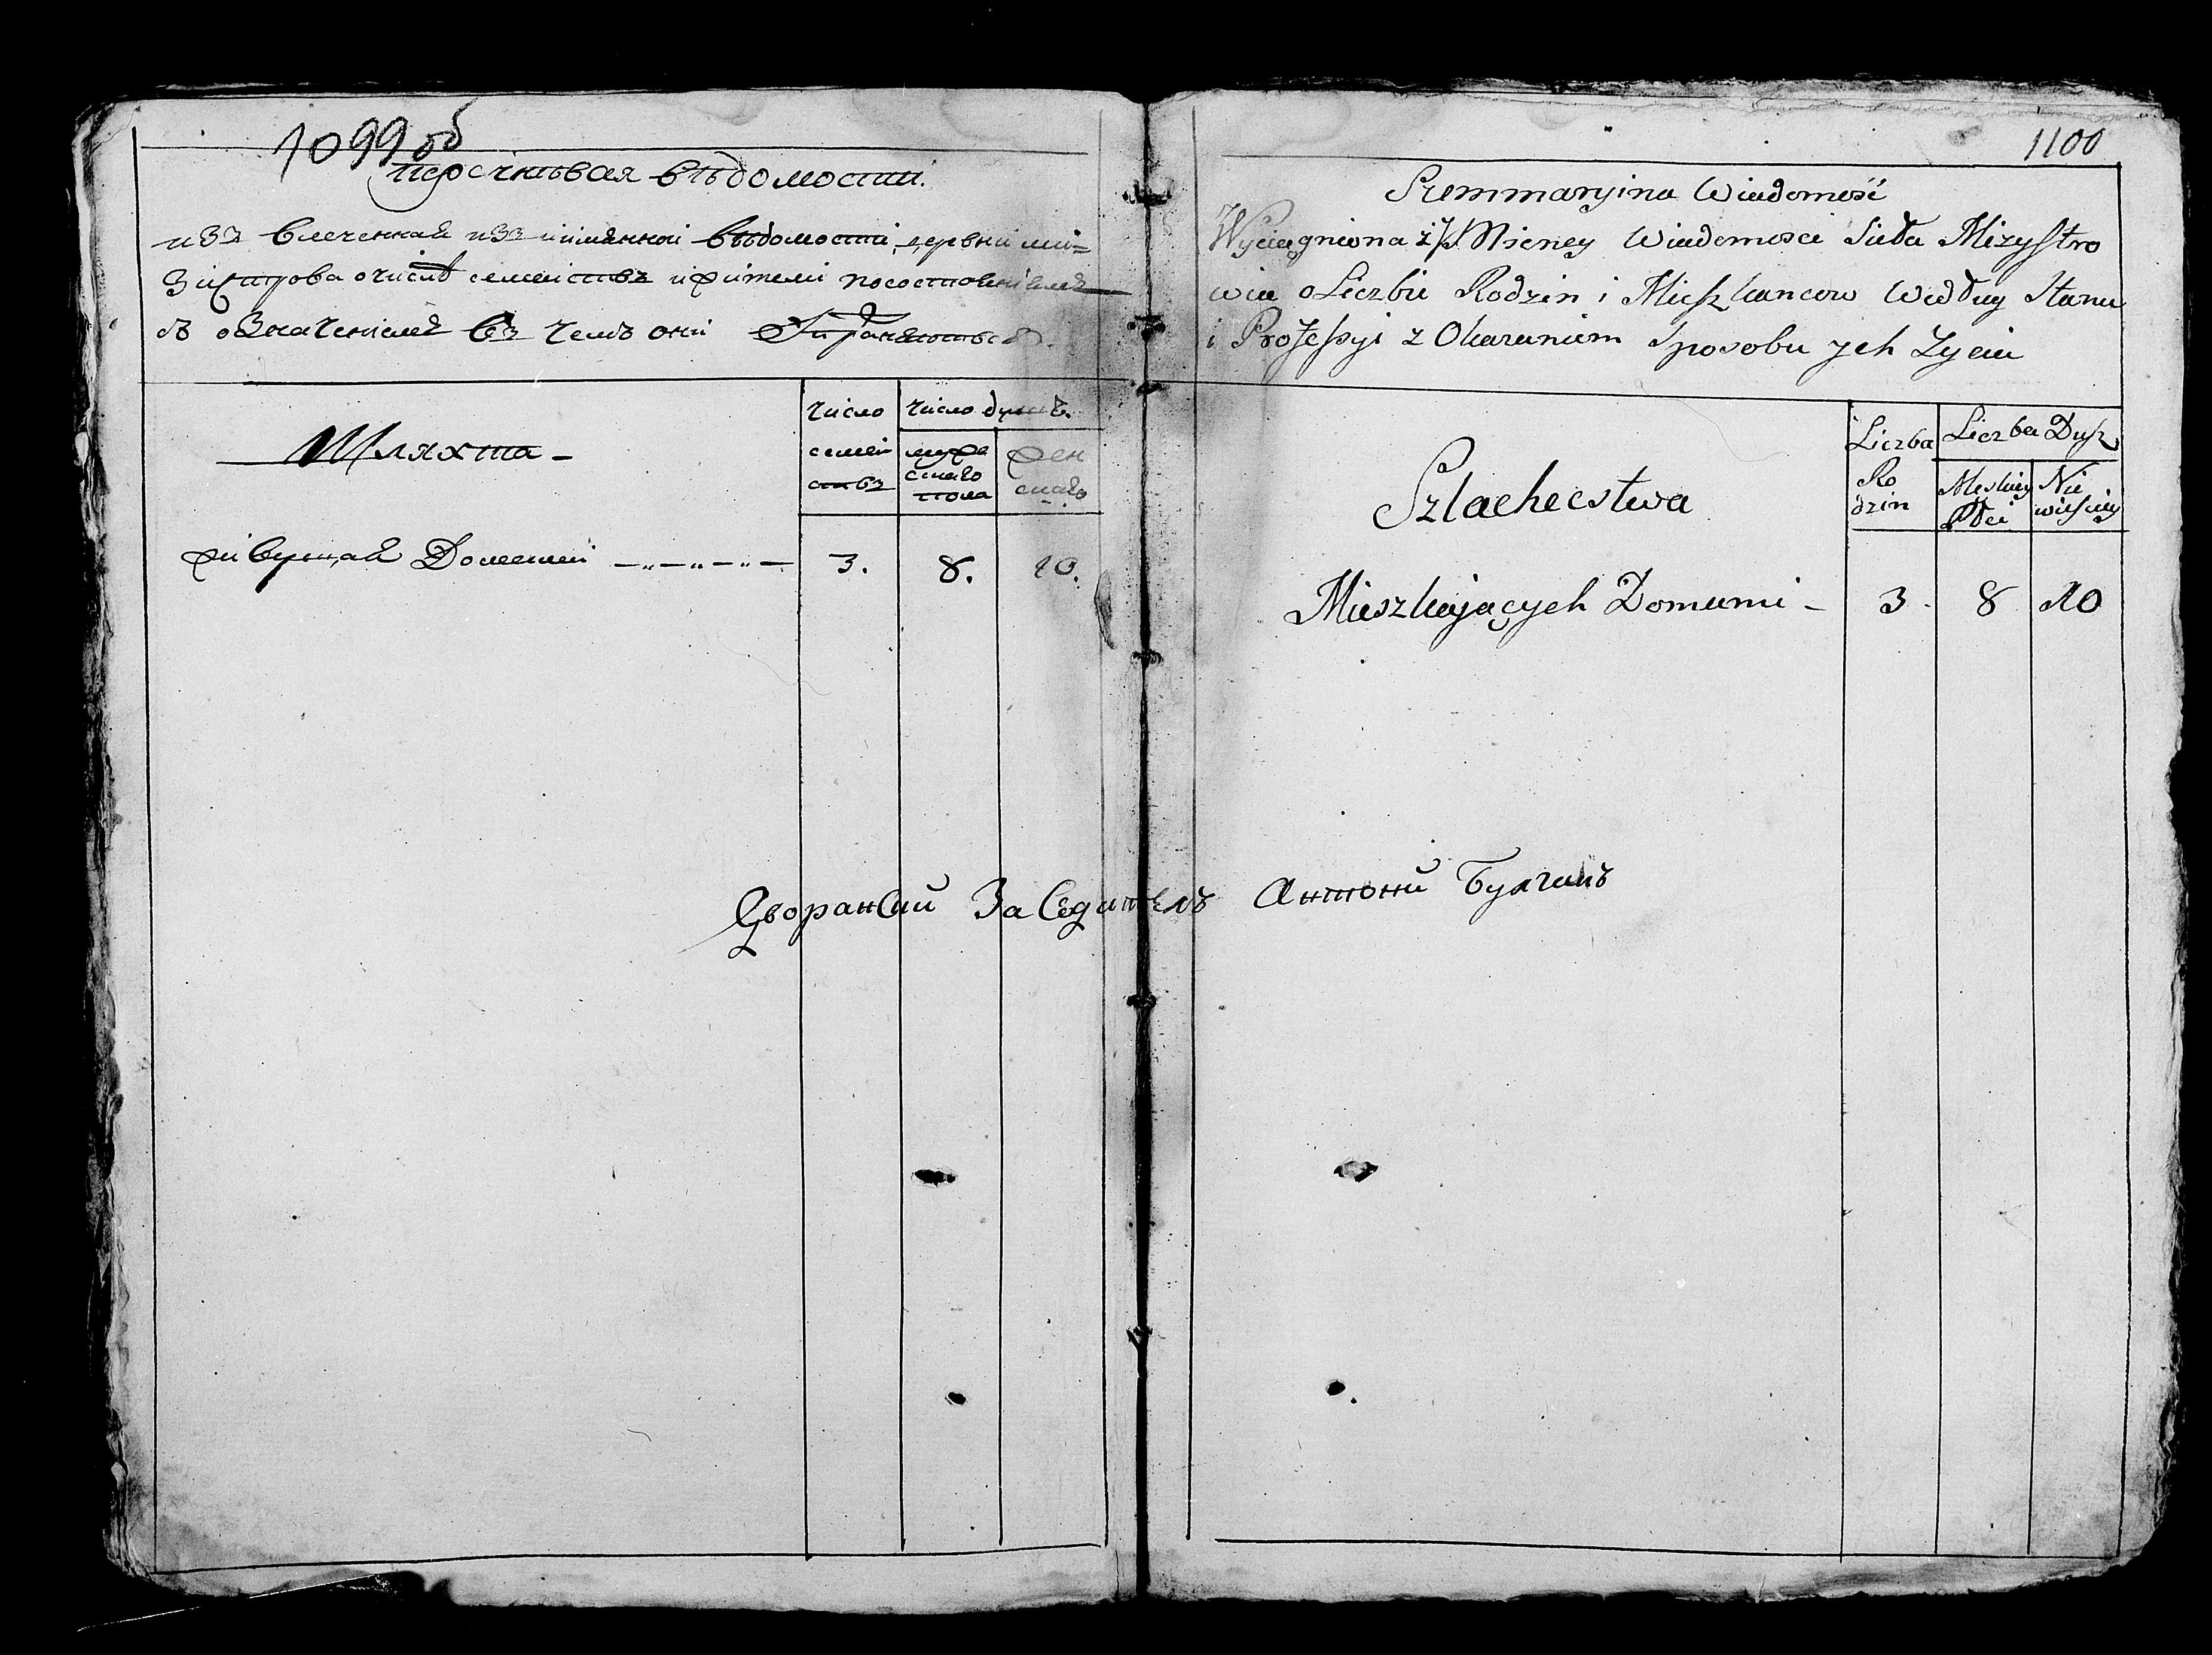 1099 об
перечневая вѣдомости.
изъ влеченная изъ имянной вѣдомости, деревни ми=
зистрова очислѣ семействъ ижителй посостоянiямъ
съ означенiемъ въ чемъ они
Шляхта -
число
семей
ствъ
число душъ.
муже
скаго
пола
жен
скаго
живущая Домами 3. 8. 10.
Дворанский За Седатель Антоний Булгакъ
1100
Summaryina Wiadomość
Wyciągniona z Jmieney Wiadomosci Sieła Mizystro
wia o Liczbie Rodzin i Mieszkancow Według Stanu
i Professyi z Okazaniem Sposobu ych Zycia
Szlachectwa
Liczba
Ro
dzin
Liczba Dusz
Męskiey
Płci
Nie
wieściey
Mieszkających Domami - 3 8 10